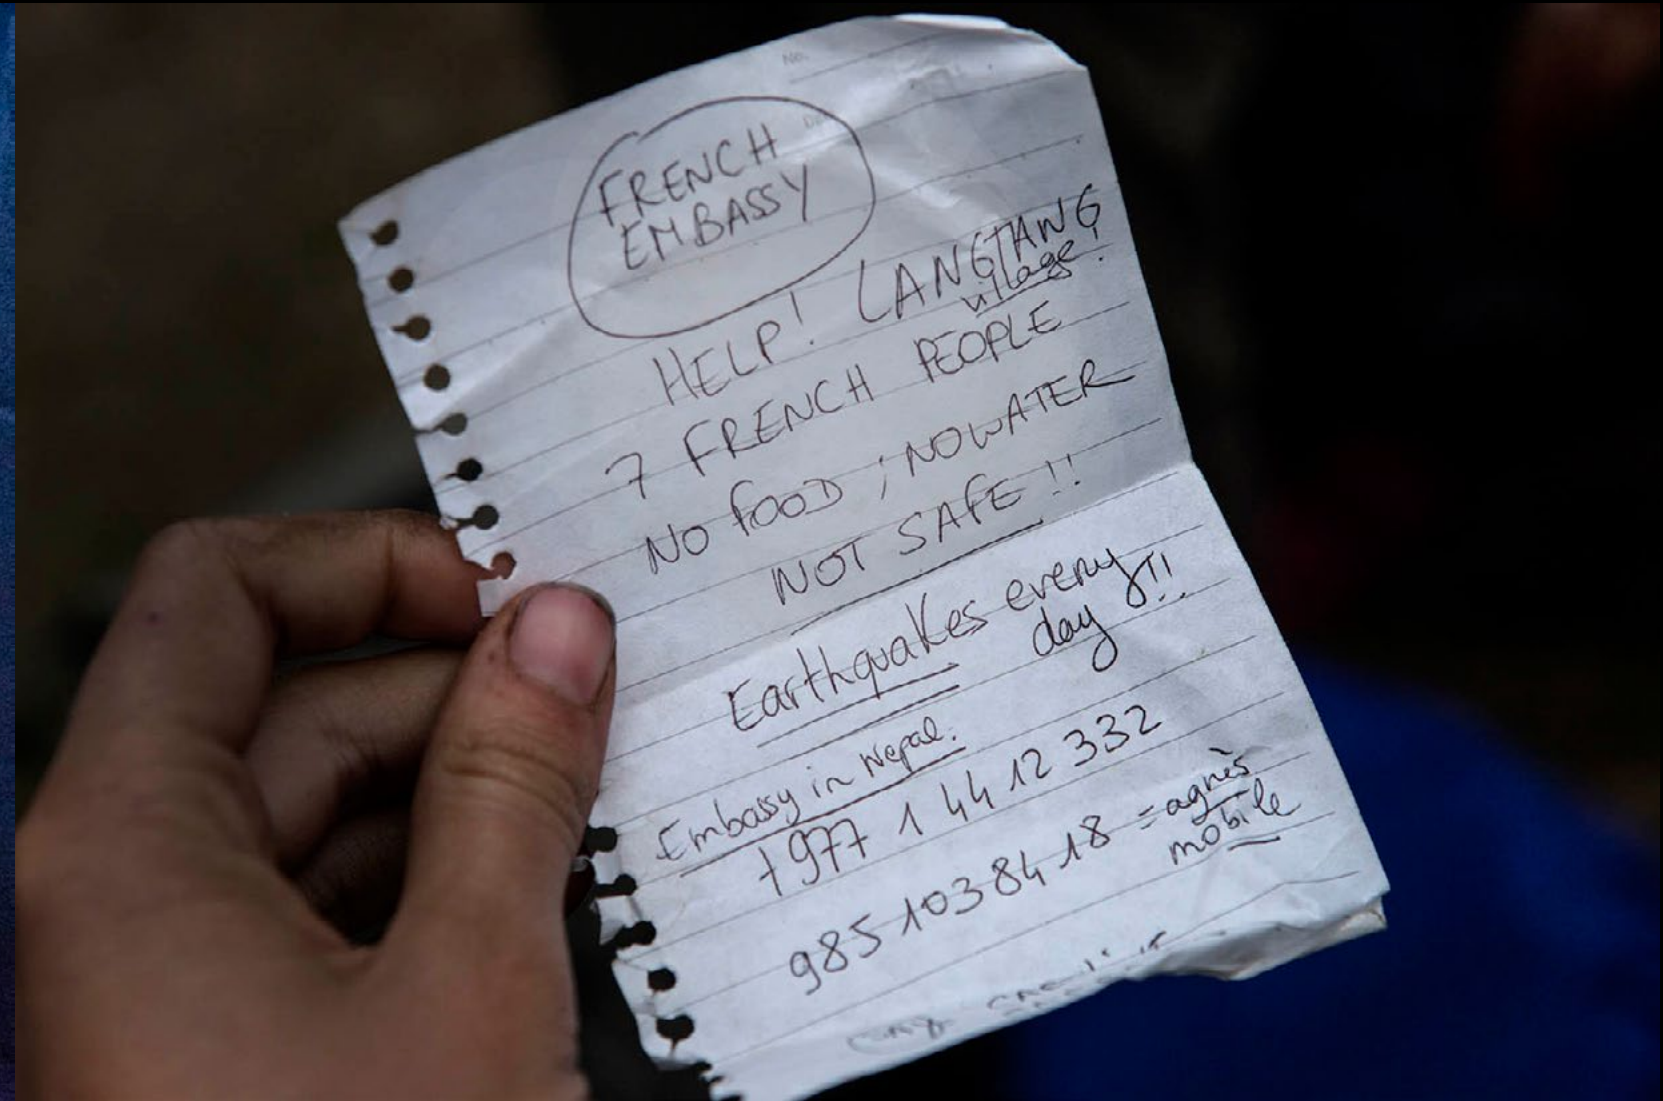 No.
FRENCH
EMBASSY
HELP! LANGTANG
village!
7 FRENCH PEOPLE
NO FOOD ; NO WATER
NOT SAFE !!
Earthquakes every
day !!
Embassy in Nepal.
+977 1 44 12 332
985 10384 18 = agnès
mobile